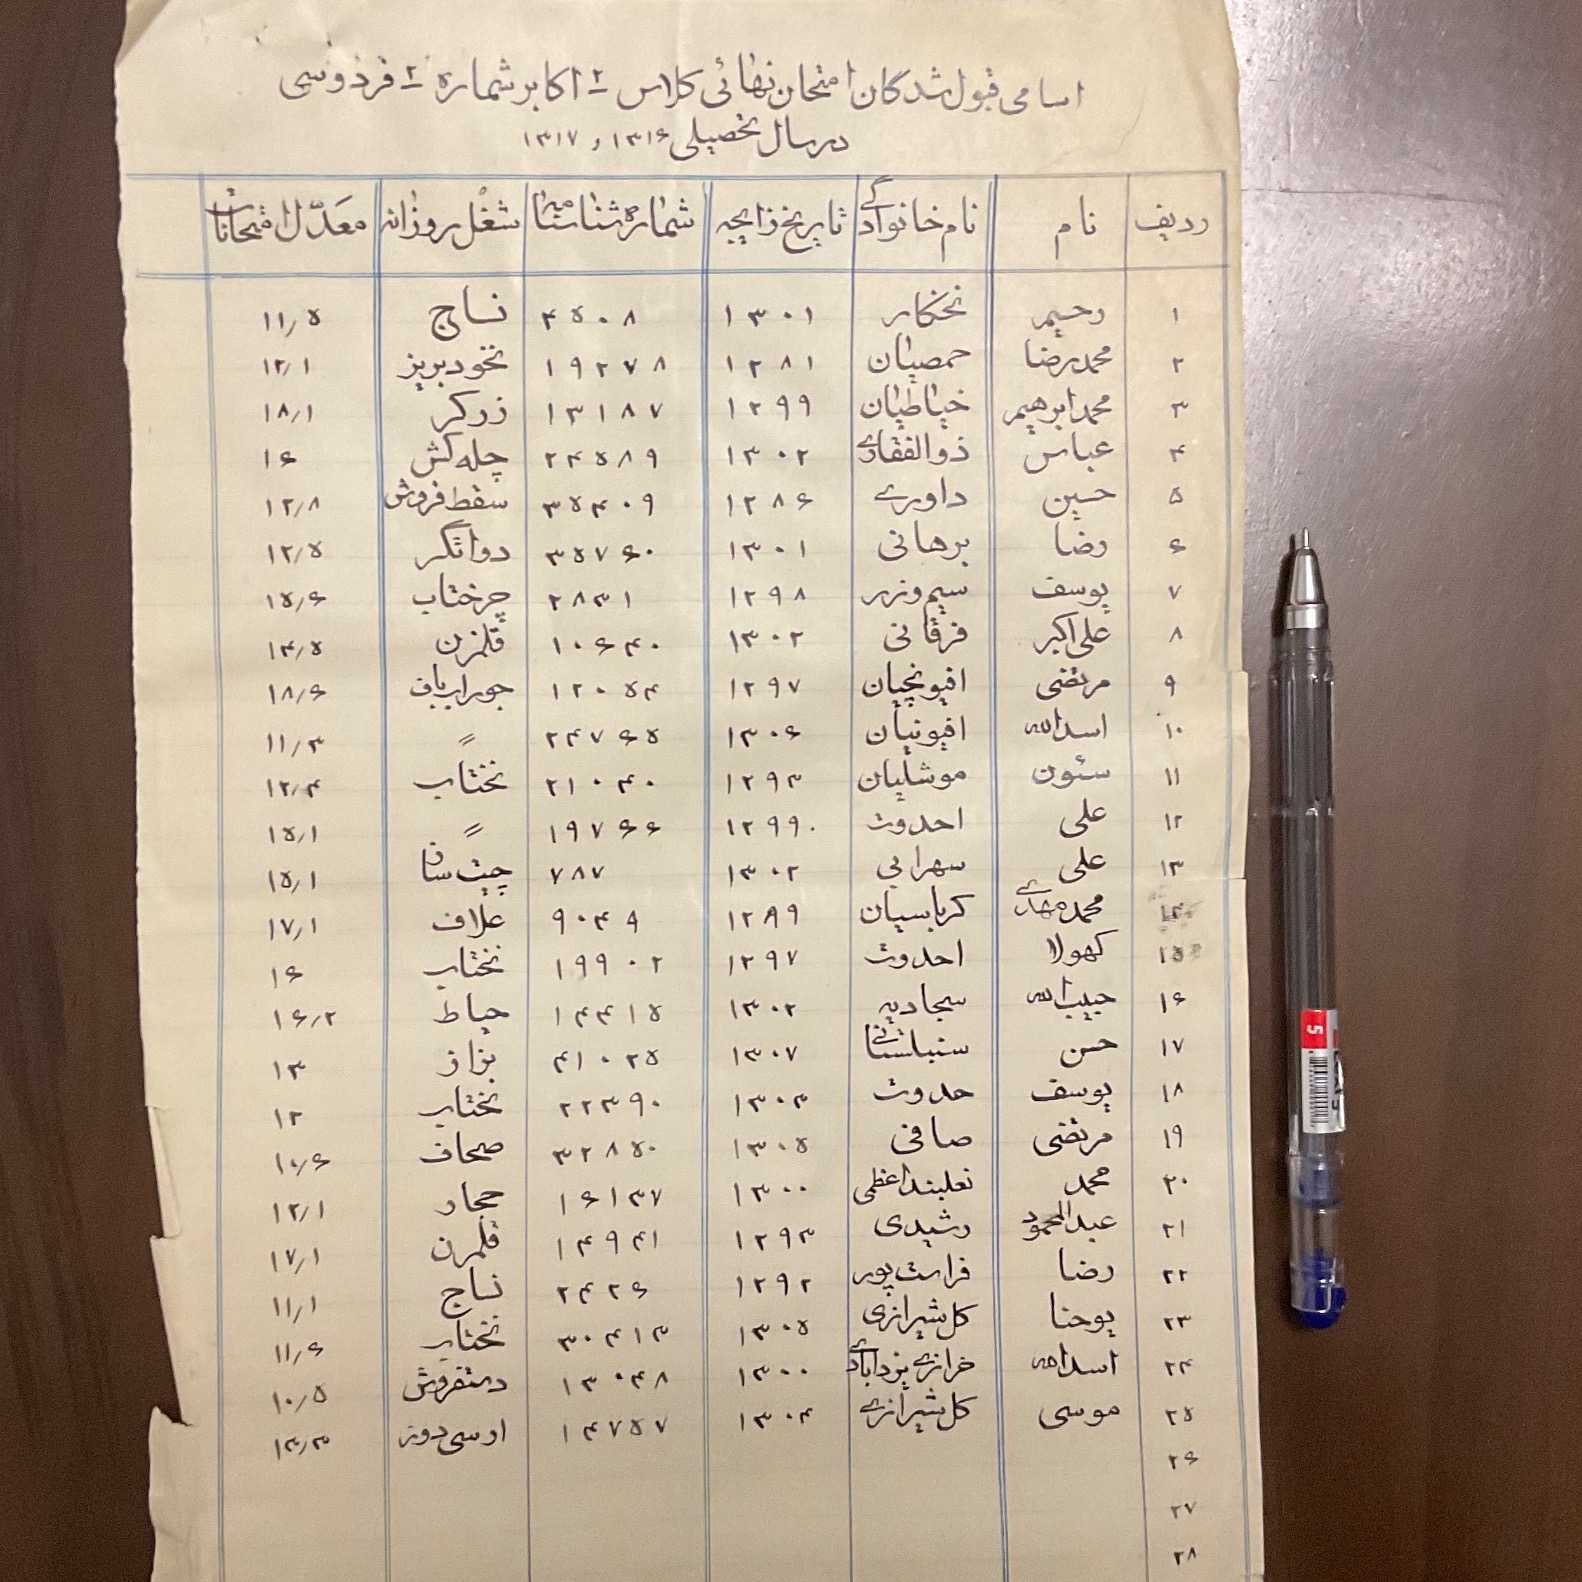 اسامی قبول شدگان امتحان نهائی کلاس ۲ اکابر شماره ۲ فردوسی
در سال تحصیلی ۱۳۱۶ و ۱۳۱۷
ردیف نام نام خانوادگی تاریخ زایچه شماره شناسنامه شغل روزانه معدّل امتحانات
۱ رحیم نخکار ۱۳۰۱ ۴۵۰۸ نساج ۱۱٫۵
۲ محمدرضا حمصیان ۱۲۸۱ ۱۹۲۷۸ نخودبریز ۱۲٫۱
۳ محمدابرهیم خیاطیان ۱۲۹۹ ۱۳۱۸۷ زرگر ۱۸٫۱
۴ عباس ذوالفقاری ۱۳۰۲ ۲۴۵۸۹ چله کش ۱۶
۵ حسین داوری ۱۲۸۶ ۳۵۴۰۹ سقط فروش ۱۲٫۸
۶ رضا برهانی ۱۳۰۱ ۳۵۷۶۰ دواتگر ۱۲٫۵
۷ یوسف سیم وزر ۱۲۹۸ ۲۸۳۱ چرختاب ۱۵٫۶
۸ علی اکبر فرقانی ۱۳۰۲ ۱۰۶۴۰ قلمزن ۱۴٫۵
۹ مرتضی افیونچیان ۱۲۹۷ ۱۲۰۵۴ جوراب باف ۱۸٫۶
۱۰ اسدالله افیونیان ۱۳۰۶ ۲۴۷۶۵ 〃 ۱۱٫۳
۱۱ سئون موشلیان ۱۲۹۳ ۲۱۰۴۰ نختاب ۱۲٫۴
۱۲ علی احدوث ۱۲۹۹ ۱۹۷۶۶ 〃 ۱۵٫۱
۱۳ علی سهرابی ۱۳۰۲ ۷۸۷ چیت ساز ۱۵٫۱
۱۴ محمدمهدی کرباسیان ۱۲۸۹ ۹۰۴۹ علاف ۱۷٫۱
۱۵ کهولا احدوث ۱۲۹۷ ۱۹۹۰۲ نختاب ۱۶
۱۶ حبیب الله سجادیه ۱۳۰۲ ۱۴۴۱۵ خیاط ۱۶٫۲
۱۷ حسن ۱۳۰۷ ۴۱۰۲۵ بزاز ۱۳
۱۸ یوسف حدوث ۱۳۰۳ ۲۲۳۹۰ نختاب ۱۲
۱۹ مرتضی صافی ۱۳۰۵ ۳۲۸۵۰ صحاف ۱۰٫۶
۲۰ محمد نعلبند اعظمی ۱۳۰۰ ۱۶۱۳۷ حجار ۱۲٫۱
۲۱ عبدالمحمود رشیدی ۱۲۹۳ ۱۴۹۴۱ قلمزن ۱۷٫۱
۲۲ رضا فراست پور ۱۲۹۲ ۲۴۲۶ نساج ۱۱٫۱
۲۳ یوحنا کل شیرازی ۱۳۰۵ ۳۰۴۱۳ نختاب ۱۱٫۶
۲۴ اسدالله خرازی یزدابادی ۱۳۰۰ ۱۳۰۴۸ دستفروش ۱۰٫۵
۲۵ موسی کل شیرازی ۱۳۰۴ ۱۴۷۵۷ ارسی دوز ۱۳٫۳
۲۶
۲۷
۲۸
5